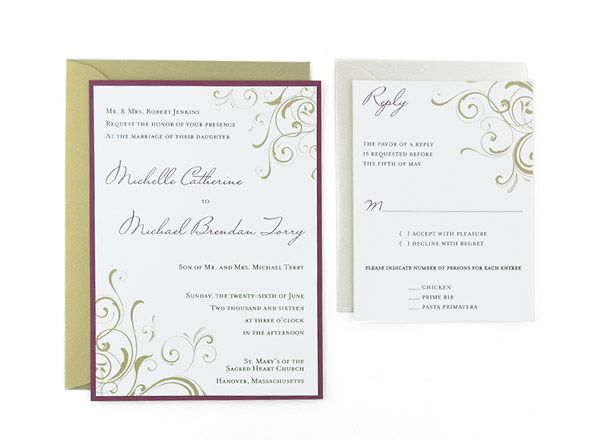 Mr. & Mrs. Robert Jenkins
Request the honor of your presence
At the marriage of their daughter
Michelle Catherine
to
Michael Brendan Terry
Son of Mr. and Mrs. Michael Terry
Sunday, the twenty-sixth of June
Two thousand and sixteen
at three o'clock
in the afternoon
St. Mary's of the
Sacred Heart Church
Hanover, Massachusetts
Reply
The favor of a reply
is requested before
the fifth of May
M
( ) accept with pleasure
( ) decline with regret
Please indicate number of persons for each entree
____ chicken
____ prime rib
____ pasta primavera